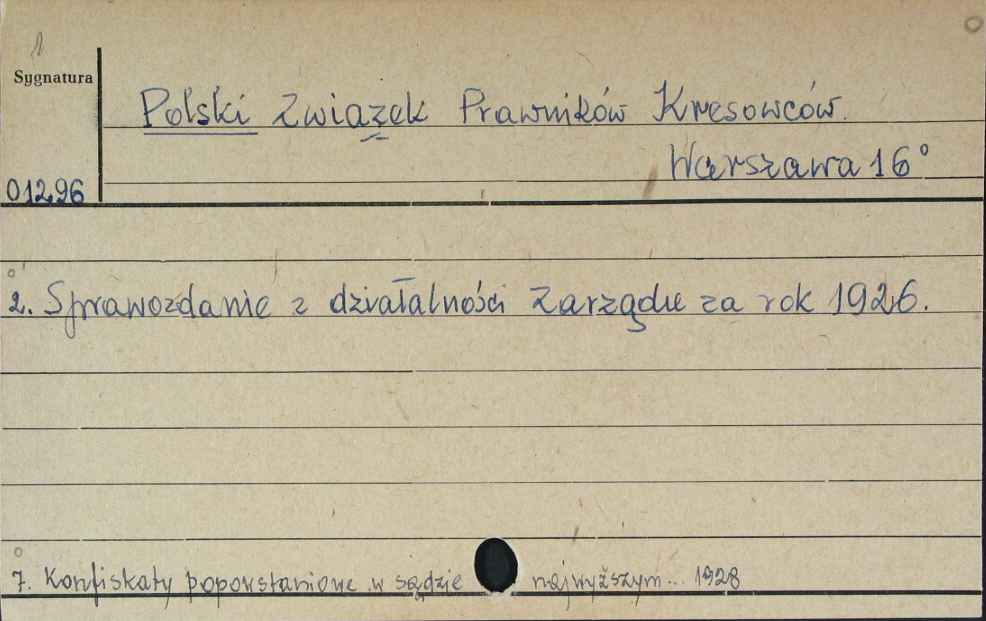 Sygnatura
Polski Związek Prawników Kresowców.
Warszawa 16°
01296
2. Sprawozdanie z działalności Zarządu za rok 1926.
7. Konfiskaty popowstaniowe w sądzie najwyższym... 1928